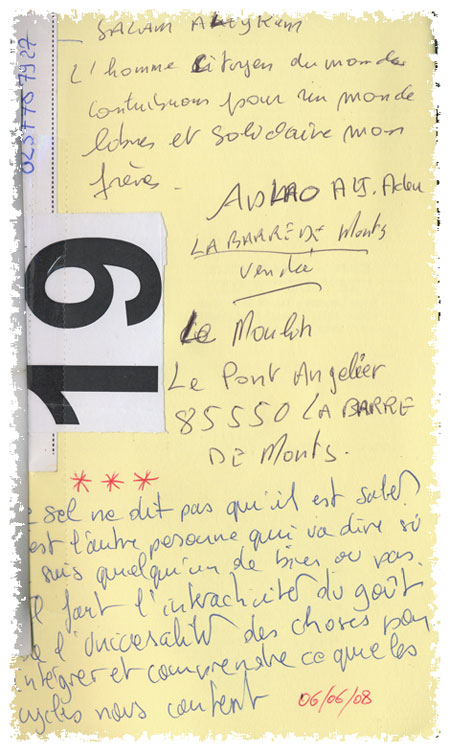 SALAM ALEYKUM
L'homme citoyen du monde
contribuons pour un monde
libres et solidaire mon
frères.
LA BARRE DE Monts
Vendée
19
Le Moulin
Le Pont Angelier
85550 LA BARRE
DE Monts.
***
sel ne dit pas qu'il est salé
est l'autre personne qui va dire si
suis quelqu'un de bien ou pas.
faut l'interactivité du goût
l'universalité des choses pour
ntégrer et comprendre ce que les
cycles nous content 06/06/08